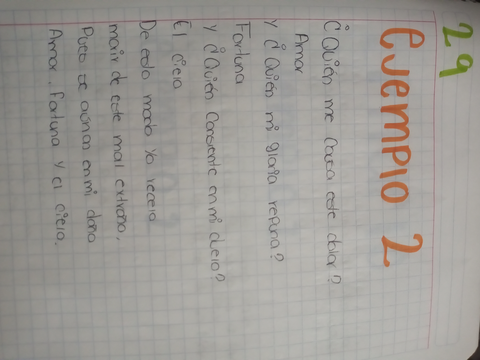 29
Ejemplo 2
¿Quién me causa este dolor?
Amor
Y ¿Quién mi gloria repuna?
Fortuna
Y ¿Quién consiente en mi duelo?
El cielo
De este modo yo recelo
morir de este mal extraño,
Pues se aúnan en mi daño
Amor, fortuna y el cielo.